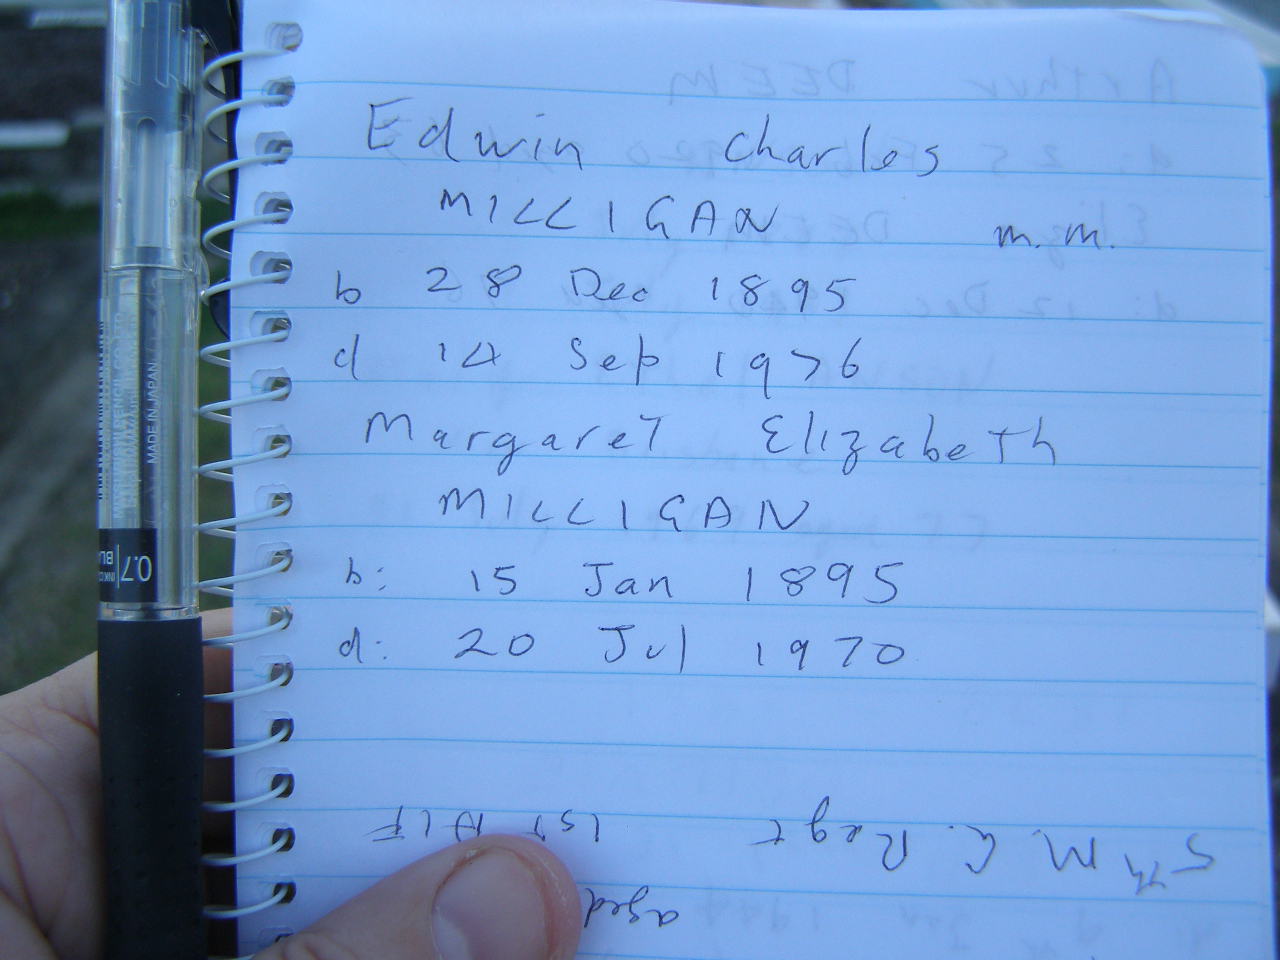 Edwin Charles
MILLIGAN m.m.
b 28 Dec 1895
d 14 Sep 1976
Margaret Elizabeth
MILLIGAN
b: 15 Jan 1895
d: 20 Jul 1970
5th M. G. Regt 1st AIF
aged
MADE IN JAPAN
0.7